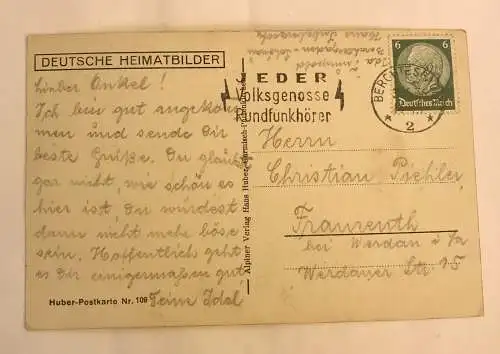 DEUTSCHE HEIMATBILDER
Lieber Onkel!
Ich bin gut angekom
men und sende Dir
beste Grüße. Du glaubst
gar nicht, wie schön es
hier ist, Du würdest
dann nicht mehr böse
sein. Hoffentlich geht
es Dir einigermaßen gut
Huber-Postkarte Nr. 109
Deine Idel
Alpiner Verlag Hans Huber, Garmisch-Partenkirchen
Berchtesgaden-Schönau
EDER
Volksgenosse
Rundfunkhörer
BERCHTESGADEN
2
6 6
Deutsches Reich
Herrn
Christian Pichler
Fraureuth
bei Werdau i/Sa
Werdauer Str. 95